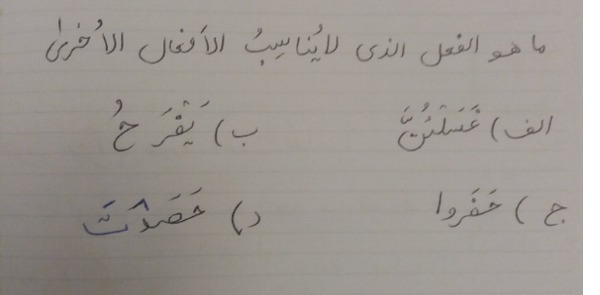 ما هو الفعل الذى لايُناسِبُ الأفعال الاُخرىٰ
الف) غَسَلْتُنَّ ب) يَفْرَحُ
ج) حَفَروا د) حَصَدَتْ